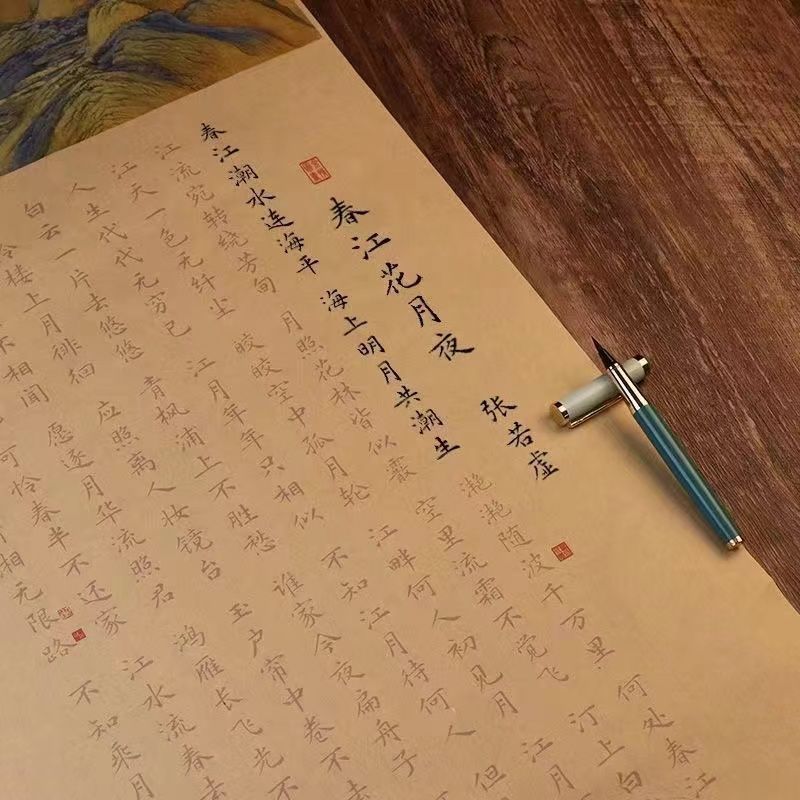 春江花月夜 张若虚
春江潮水连海平 海上明月共潮生 滟滟随波千万里 何处春江
江流宛转绕芳甸 月照花林皆似霰 空里流霜不觉飞 汀上白
江天一色无纤尘 皎皎空中孤月轮 江畔何人初见月 江月
人生代代无穷已 江月年年只相似 不知江月待何人 但
白云一片去悠悠 青枫浦上不胜愁 谁家今夜扁舟子
楼上月徘徊 应照离人妆镜台 玉户帘中卷不去
不相闻 愿逐月华流照君 鸿雁长飞光不
可怜春半不还家 江水流春去
湘无限路 不知乘月